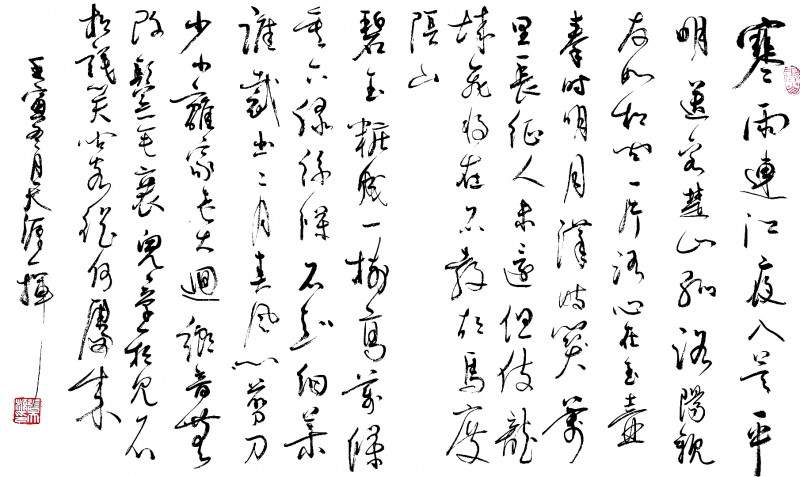 寒雨連江夜入吴平
明送客楚山孤洛陽親
友如相问一片冰心在玉壶
秦时明月漢时関萬
里長征人未還但使龍
城飛将在不教胡馬度
陰山
碧玉粧成一树高萬條
垂下绿絲絛不知细葉
誰裁出二月春风似剪刀
少小離家老大迴鄉音無
改鬓毛衰兒童相见不
相識笑问客從何處来
壬寅冬月天涯一揮